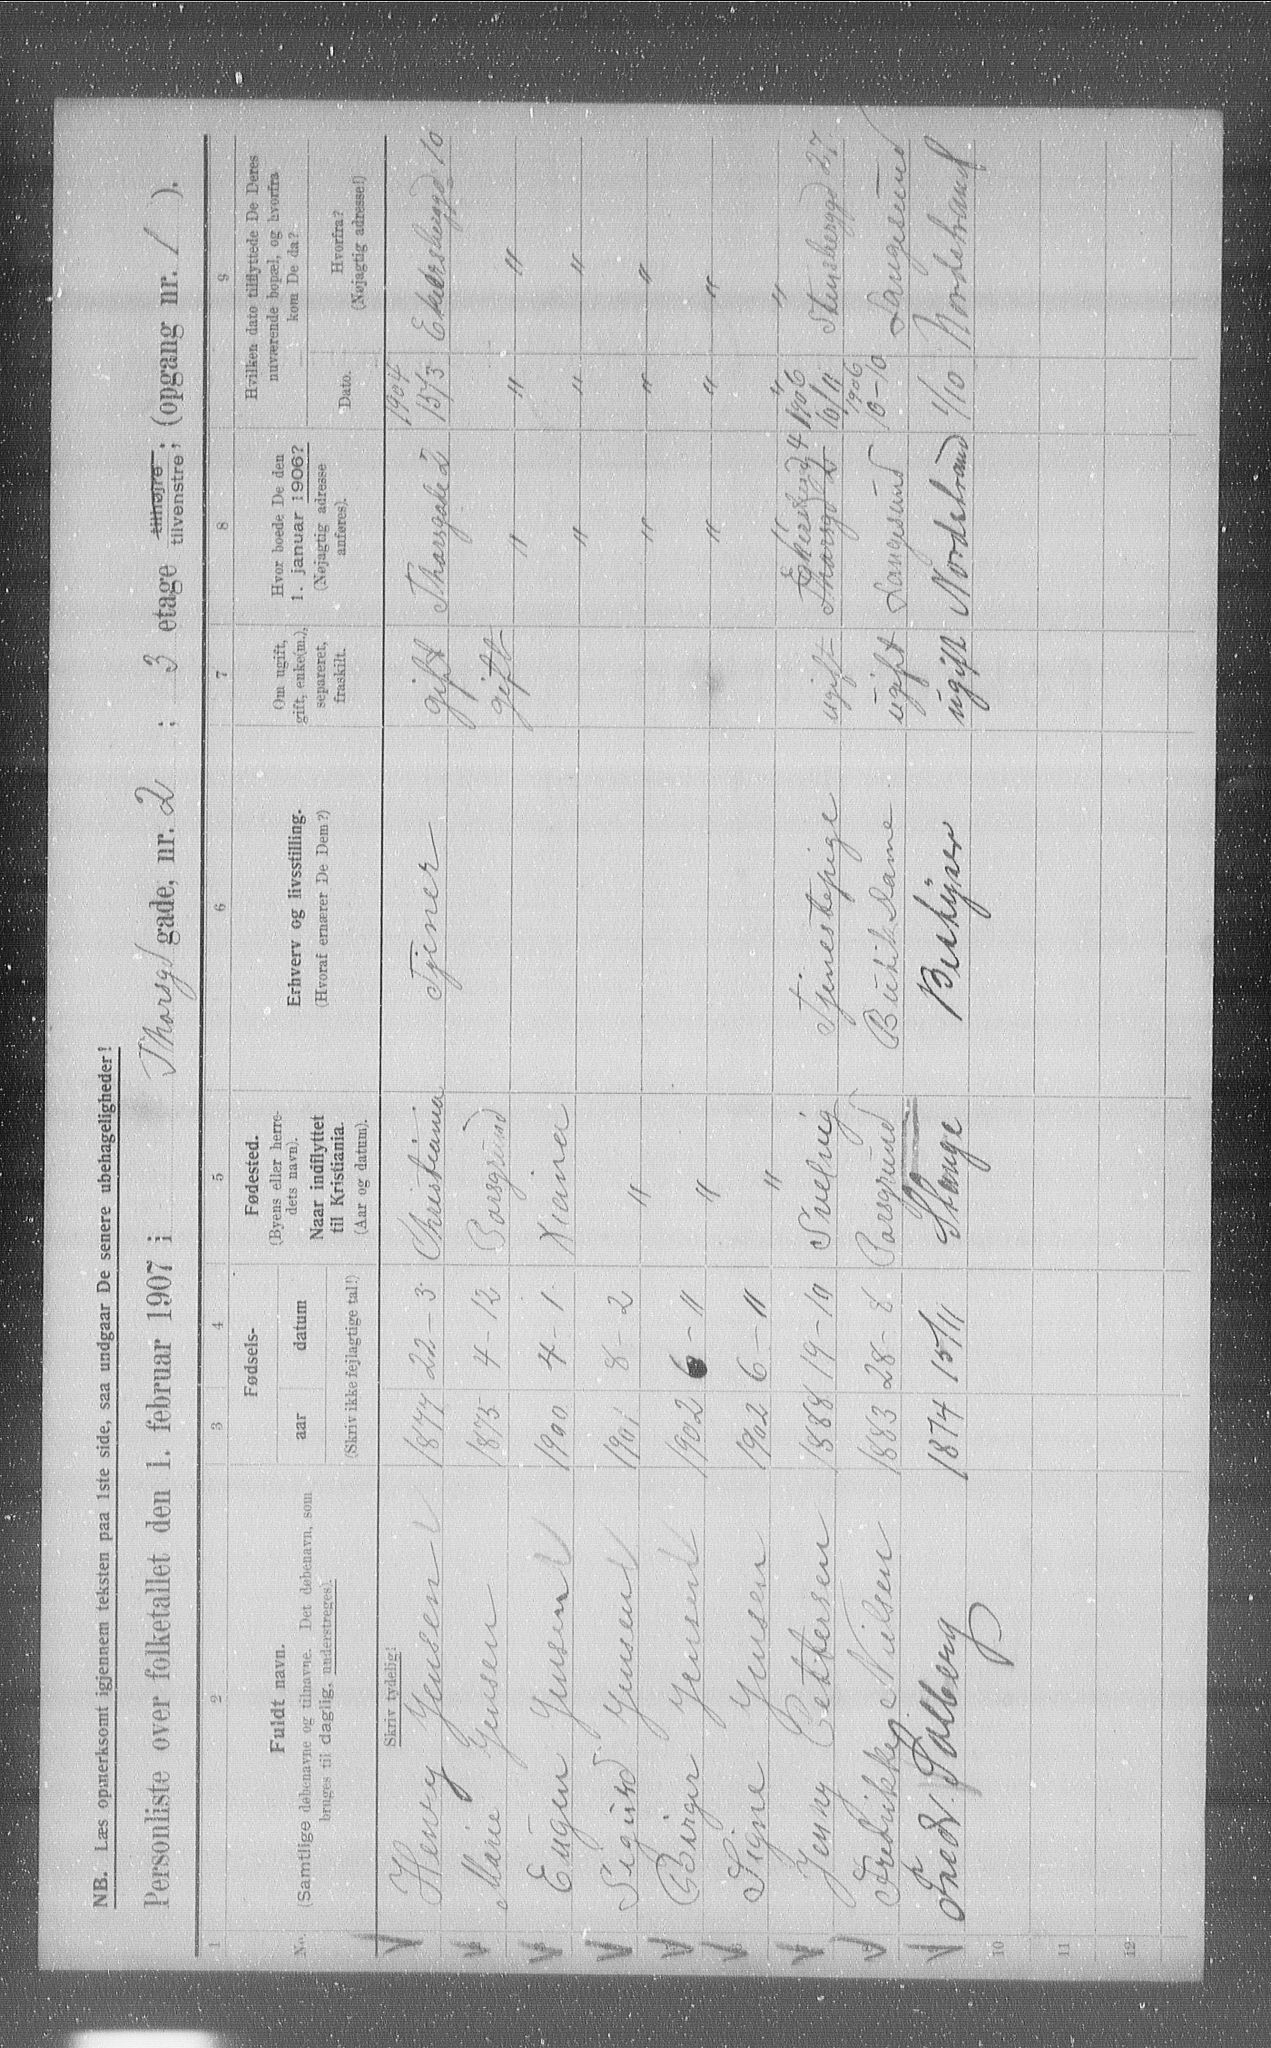 NB. Læs opmerksomt igjennem teksten paa 1ste side, saa undgaar De senere ubehageligheder!
Personliste over folketallet den 1. februar 1907 i Thorsgd gade, nr. 2 ; 3 etage tilhøjre tilvenstre; (opgang nr. 1 ).
1 2 3 4 5 6 7 8 9
No. Fuldt navn. (Samtlige døbenavne og tilnavne. Det døbenavn, som bruges til daglig, understreges).
Fødsels- aar datum (Skriv ikke fejlagtige tal!)
Fødested. (Byens eller herredets navn). Naar indflyttet til Kristiania. (Aar og datum).
Erhverv og livsstilling. (Hvoraf ernærer De Dem?)
Om ugift, gift, enke(m.), separeret, fraskilt.
Hvor boede De den 1. januar 1906? (Nøjagtig adresse anføres).
Hvilken dato tilflyttede De Deres nuværende bopæl, og hvorfra kom De da?
Dato. Hvorfra? (Nøjagtig adresse!)
Skriv tydelig!
Henry Jensen 1877 22-3 Christiania Tjener gift Thorsgade 2 1904 15/3 Ekersberggd 10
Marie Jensen 1875 4-12 Porsgrund gift " " "
Eugen Jensen 1900 4-1 Xiania " " "
Sigurd Jensen 1901 8-2 " " " "
Birger Jensen 1902 6-11 " " " "
Signe Jensen 1902 6-11 " " " "
Jenny Pettersen 1888 19-10 Svelvig Tjenestepige ugift Thorsgd 2 1906 10/11 Stensberggd 27
Fredrikke Nielsen 1883 28-8 Porsgrund Butikdame ugift Langesund 1906 8-10 Langesund
Fredr. Salberg 1874 15/11 Stange Betjner ugift Nordstrand 1/10 Nordstrand
10
11
12